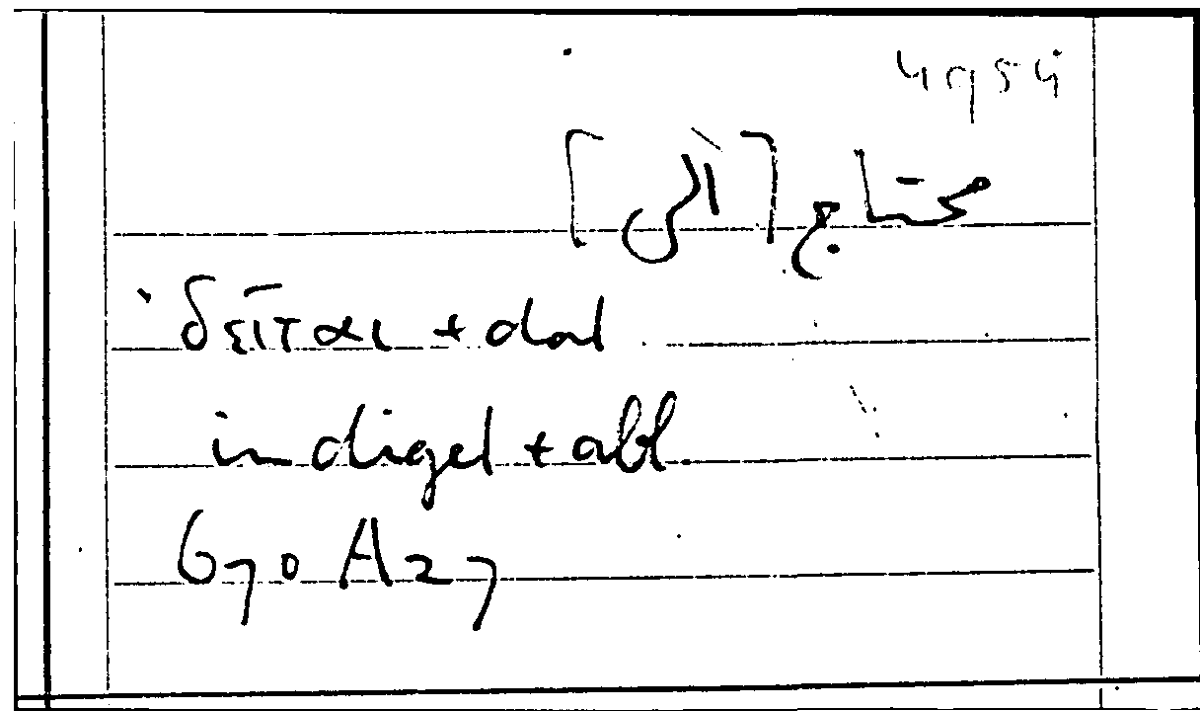 محتاج [الى]
δεῖται + dat
indiget + abl.
670 A27